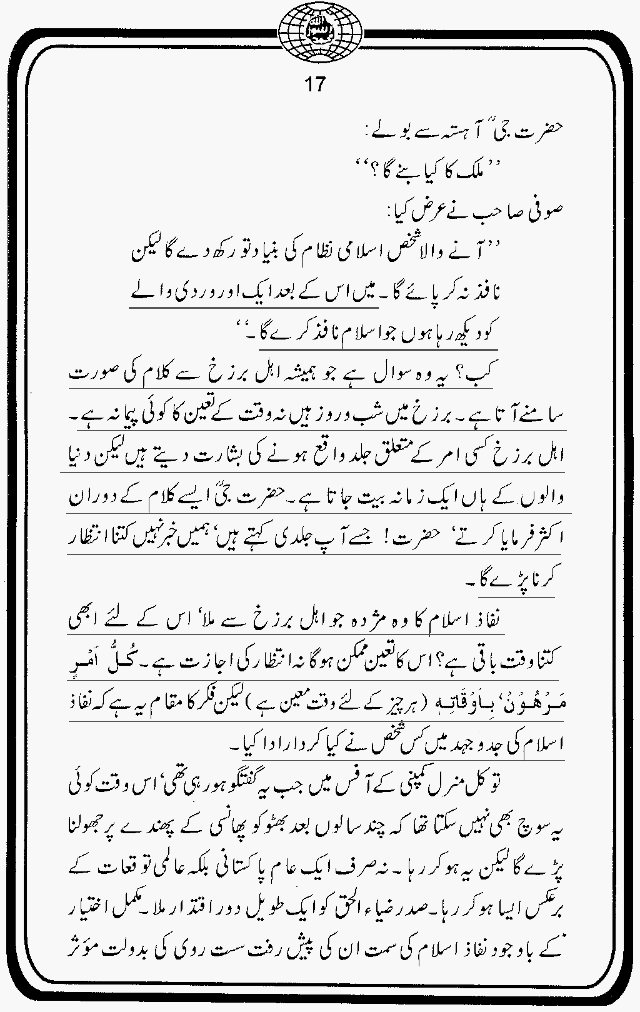 17
حضرت جیؒ آہستہ سے بولے:
’’ملک کا کیا بنے گا؟‘‘
صوفی صاحب نے عرض کیا:
’’آنے والا شخص اسلامی نظام کی بنیاد تو رکھ دے گا لیکن
نافذ نہ کر پائے گا۔ میں اس کے بعد ایک اور وردی والے
کو دیکھ رہا ہوں جو اسلام نافذ کرے گا۔‘‘
کب؟ یہ وہ سوال ہے جو ہمیشہ اہل برزخ سے کلام کی صورت
سامنے آتا ہے۔ برزخ میں شب و روز ہیں نہ وقت کے تعین کا کوئی پیمانہ ہے۔
اہل برزخ کسی امر کے متعلق جلد واقع ہونے کی بشارت دیتے ہیں لیکن دنیا
والوں کے ہاں ایک زمانہ بیت جاتا ہے۔ حضرت جیؒ ایسے کلام کے دوران
اکثر فرمایا کرتے‘ حضرت! جسے آپ جلدی کہتے ہیں‘ ہمیں خبر نہیں کتنا انتظار
کرنا پڑے گا۔
نفاذ اسلام کا وہ مژدہ جو اہل برزخ سے ملا‘ اس کے لئے ابھی
کتنا وقت باقی ہے؟ اس کا تعین ممکن ہو گا نہ انتظار کی اجازت ہے۔ کُلُّ اَمْرٍ
مَرْهُوْنٌ بِاَوْقَاتِہٖ (ہر چیز کے لئے وقت معین ہے) لیکن فکر کا مقام یہ ہے کہ نفاذ
اسلام کی جدوجہد میں کس شخص نے کیا کردار ادا کیا۔
توکل منرل کمپنی کے آفس میں جب یہ گفتگو ہو رہی تھی‘ اس وقت کوئی
یہ سوچ بھی نہیں سکتا تھا کہ چند سالوں بعد بھٹو کو پھانسی کے پھندے پر جھولنا
پڑے گا لیکن یہ ہو کر رہا۔ نہ صرف ایک عام پاکستانی بلکہ عالمی توقعات کے
برعکس ایسا ہو کر رہا۔ صدر ضیاء الحق کو ایک طویل دور اقتدار ملا۔ مکمل اختیار
کے باوجود نفاذ اسلام کی سمت ان کی پیش رفت سست روی کی بدولت مؤثر